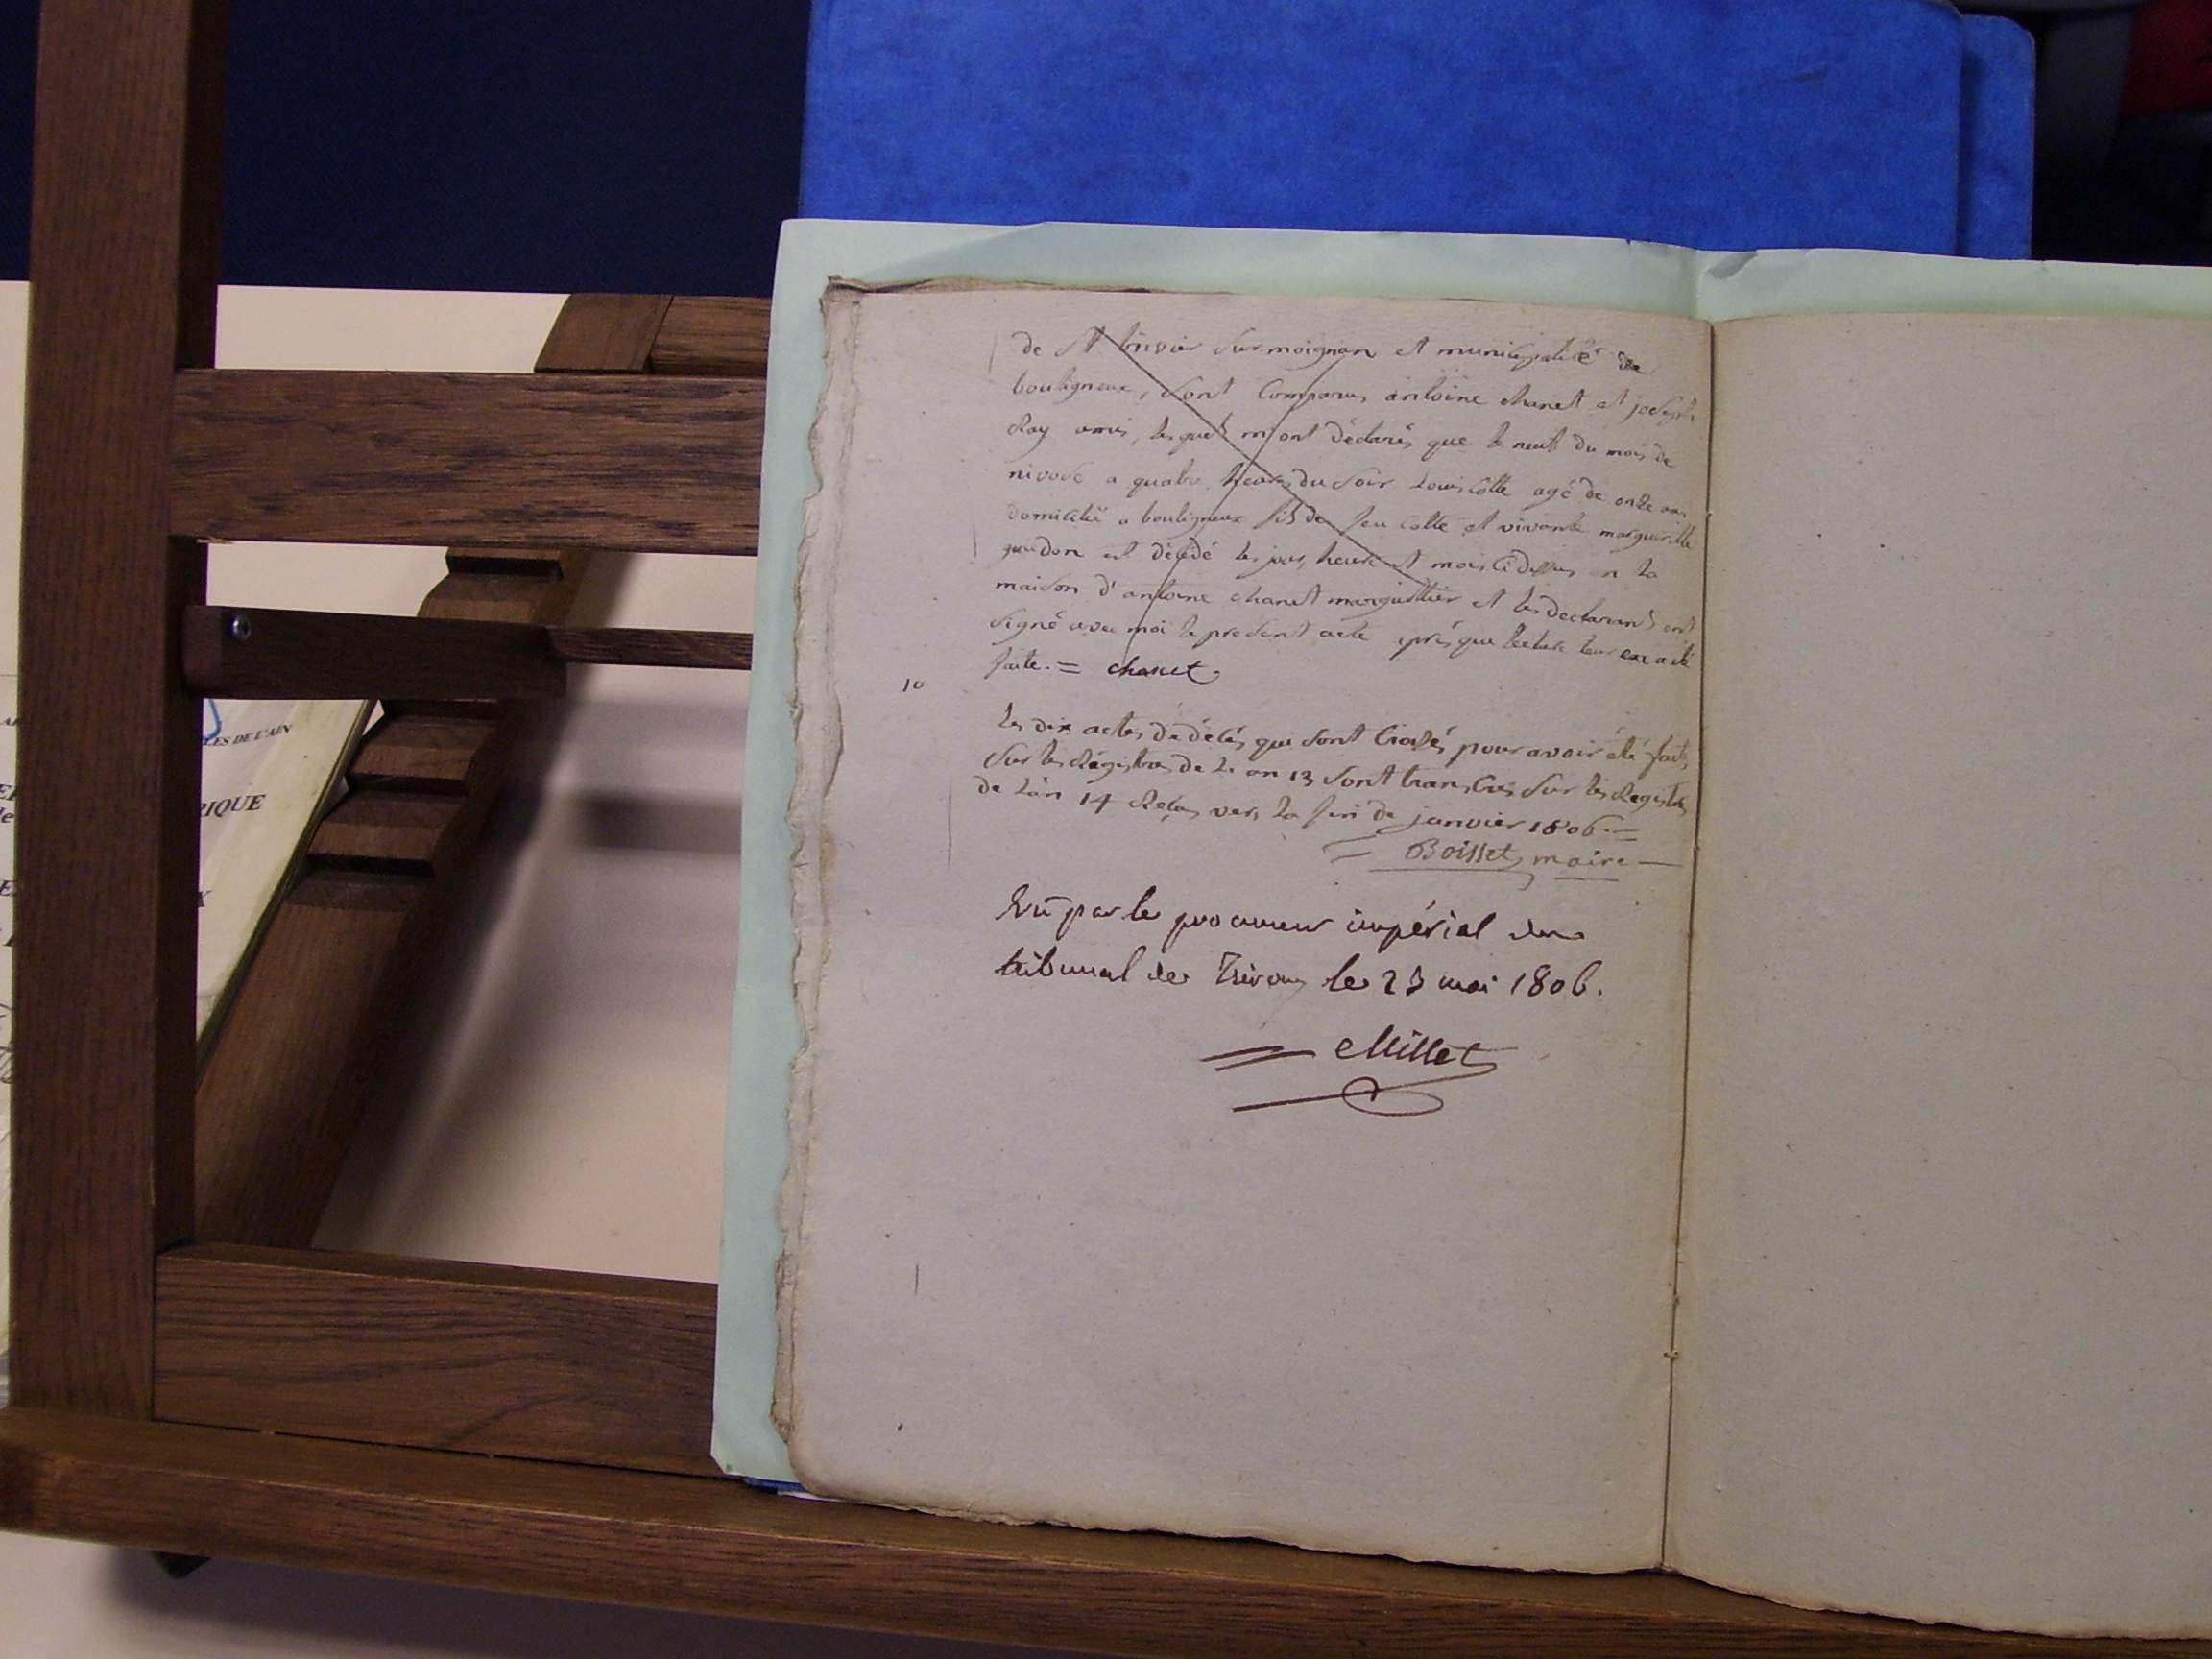 de St trivier sur moignan et municipalité de
bouligneux, sont comparus antoine chanet et joseph
Ray amis, lesquels m'ont déclarés que le neuf du mois de
nivose a quatre heures du soir Louis Cotte agé de onze ans
domicilié a bouligneux fils de feu Cotte et vivante margueritte
guidon est décédé les jour, heure et mois ci dessus en la
maison d'antoine chanet marguillier et les declarants ont
signé avec moi le present acte après que lecture leur en a été
faite. = chanet
10
les dix actes de décès qui sont croisés pour avoir été faits
sur les Régistres de l'an 13 sont transcris sur les Registres
de l'an 14 Reçus vers la fin de janvier 1806 =
Boisset maire
Vu par le procureur impérial du
tribunal de Trévoux le 23 mai 1806.
Millet
LES DE L'AIN
RIQUE